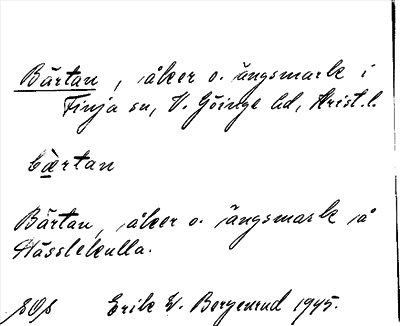 Bärtan, åker o. ängsmark i
Finja sn, V. Göinge hd, Krist. l.
bærtan
Bärtan, åker o. ängsmark på
Hässlekulla.
Erik W. Bergenrud 1945.